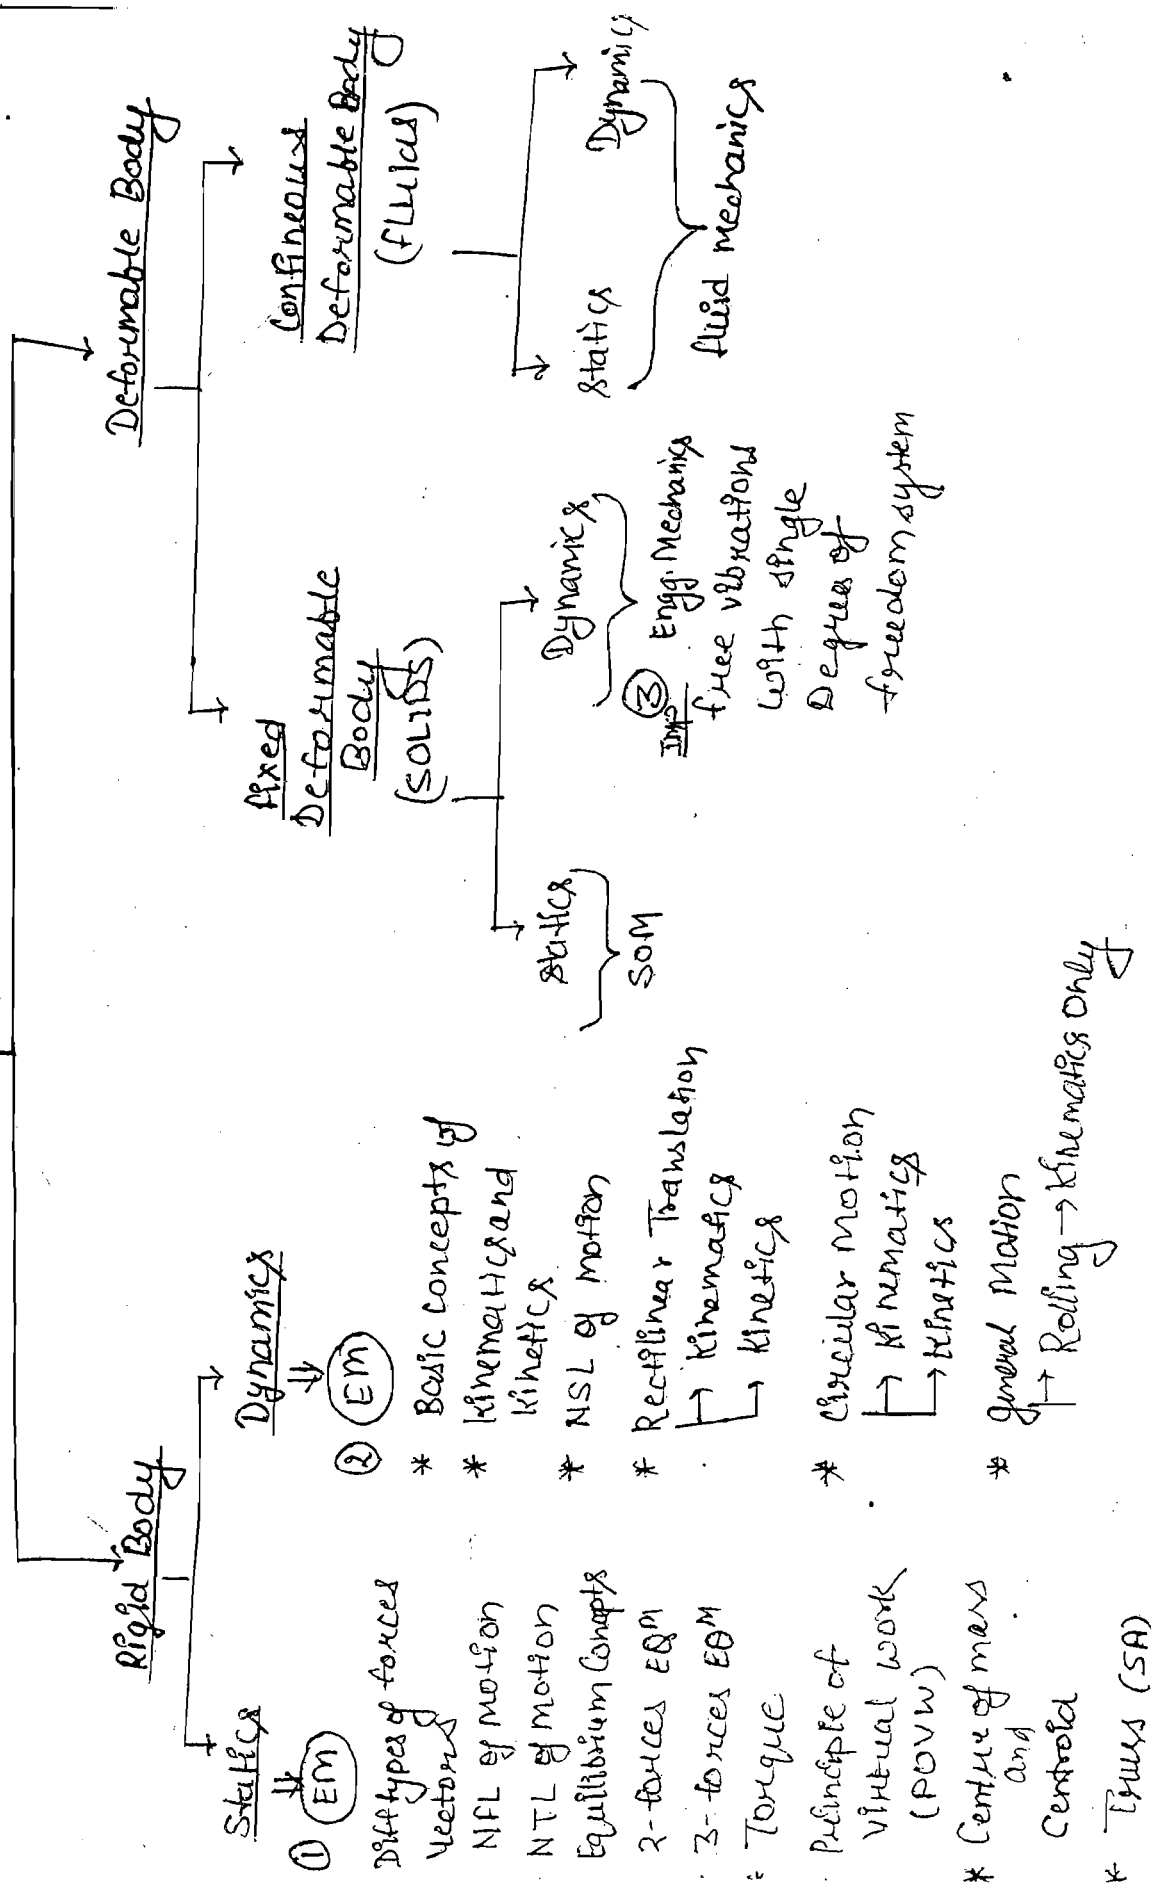 Rigid Body
Statics
① EM
Diff types of forces
Vectors
NFL of motion
NTL of motion
Equilibrium Concepts
2-forces EQM
3-forces EQM
* Torque
Principle of
Virtual Work
(POVW)
* Centre of mass
and
Centroid
* Truss (SA)
Dynamics
② EM
* Basic concepts of
* Kinematics and
Kinetics
* NSL of motion
* Rectilinear Translation
→ Kinematics
→ Kinetics
* Circular Motion
→ Kinematics
→ Kinetics
* General Motion
→ Rolling → Kinematics Only
Deformable Body
Fixed
Deformable
Body
(SOLIDS)
Statics
SOM
Dynamics
③ Engg. Mechanics
Imp
free vibrations
with single
Degrees of
freedom system
Confineous
Deformable Body
(fluids)
Statics
Dynamics
fluid mechanics